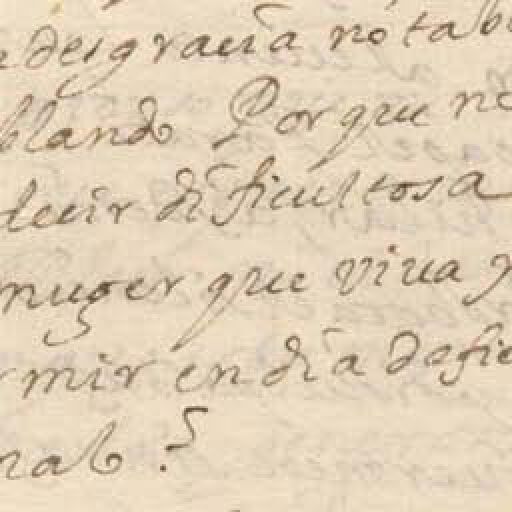 desgracia notab
blando Porque no
decir dificultosa
muger que viua y
rmir en dia de fie
nal?